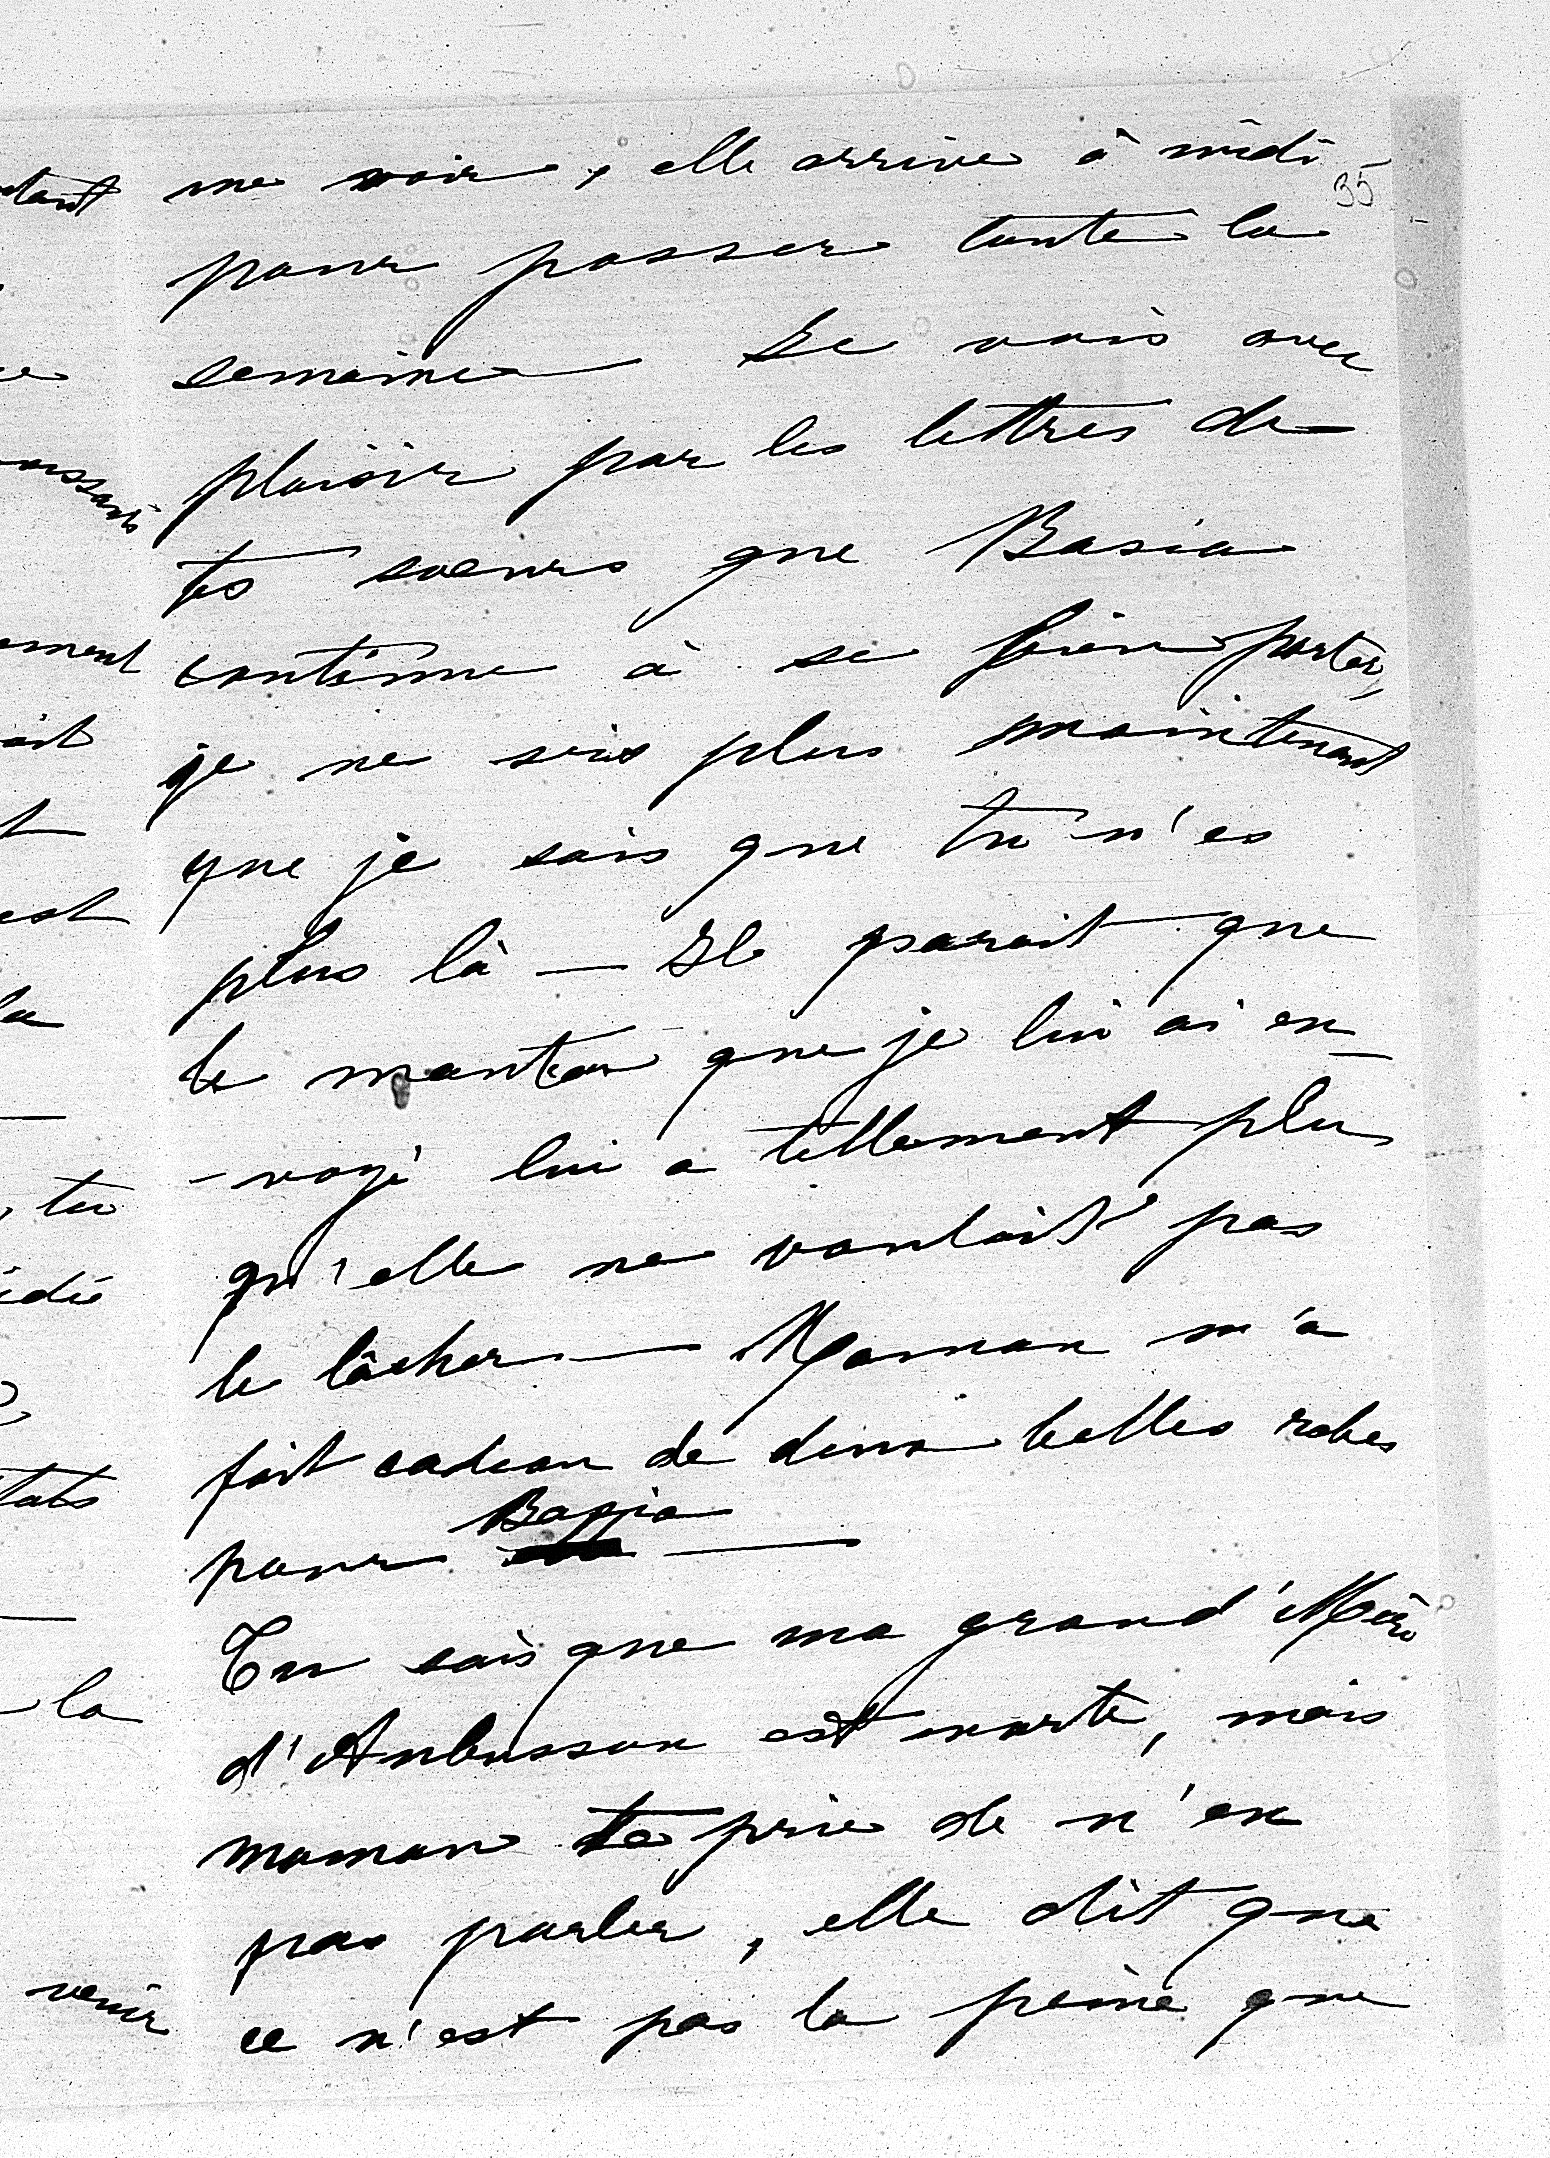 me voir, elle arrive à midi -
35
pour passer toute la
semaine — Je vois avec
plaisir par les lettres de
tes soeurs que Basia
continue à se bien porter,
je ne sais plus maintenant
que je sais que tu n'es
plus là — Il parait que
le manteau que je lui ai en-
-voyé lui a tellement plu
qu'elle ne voulait pas
le lâcher — Maman m'a
fait cadeau de deux belles robes
pour Basia —
Tu sais que ma grand'Mère
d'Aubusson est morte, mais
maman te prie de n'en
pas parler, elle dit que
ce n'est pas la peine que
tant
ment
est
la
tu
tats
la
venir